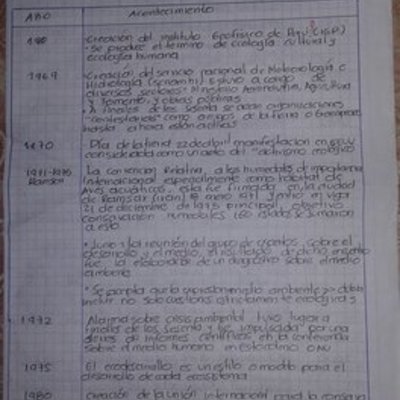 AÑO Acontecimiento
Creación del instituto Geofísico de Perú (IGP)
se produce el termino de ecología cultural y
ecología humana
1969 Creación del servicio nacional de Meteorología e
Hidrología (senamhi) Estuvo a cargo de
diversos sectores: Ministerio Aeronautica, Agricultura
y Fomento y obras públicas
A finales de los sesenta se crean organizaciones
como amigos de la tierra o Greenpeace
hasta ahora están activas
1970 Día de la tierra 22 de abril manifestación en EEUU
considerada como un acto del activismo ecológico
1971-1975 La convención relativa a los humedales de importancia
Ramsar internacional especialmente como habitat de
aves acuáticas, esta fue firmada en la ciudad
de Ramsar (Irán) 1971 y entró en vigor
21 de diciembre de 1975 principal objetivo
conservación humedales 160 estados se sumaron
a esto
Junio 1 la reunión del grupo de expertos sobre el
desarrollo y el medio, el resultado de dicho
fue la elaboración de un diagnostico sobre el medio
ambiente
Se acepta que la expresión medio ambiente debía
incluir no solo cuestiones ecológicas y
1972 Alarma sobre crisis ambiental tuvo lugar a
finales de los sesenta y fue impulsada por una
de informes científicos en la conferencia
sobre el medio humano en estocolmo ONU
1975 El ecodesarrollo es un estilo o modelo para el
desarrollo de cada ecosistema
1980 creación de la unión internacional para la